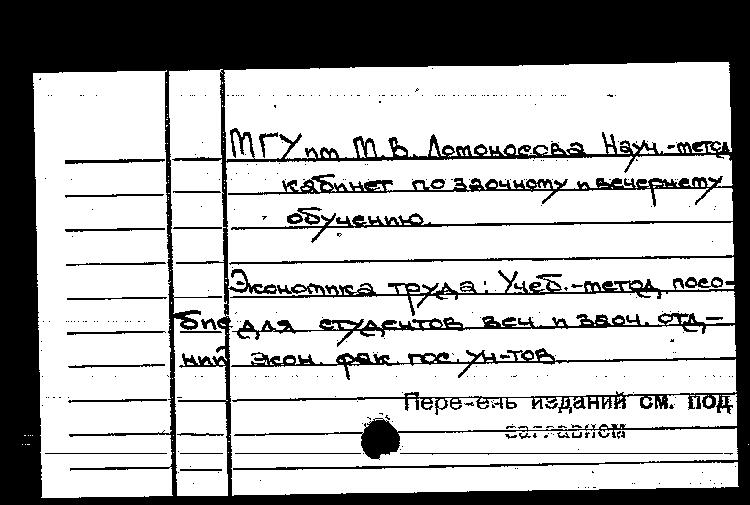 МГУ им М.В. Ломоносова Науч.-метод
кабинет по заочному и вечернему
обучению.
Экономика труда: Учеб.-метод. посо-
бие для студентов веч. и заоч. отд-
ний экон. фак. гос. ун-тов.
Перечень изданий см. под
заглавием